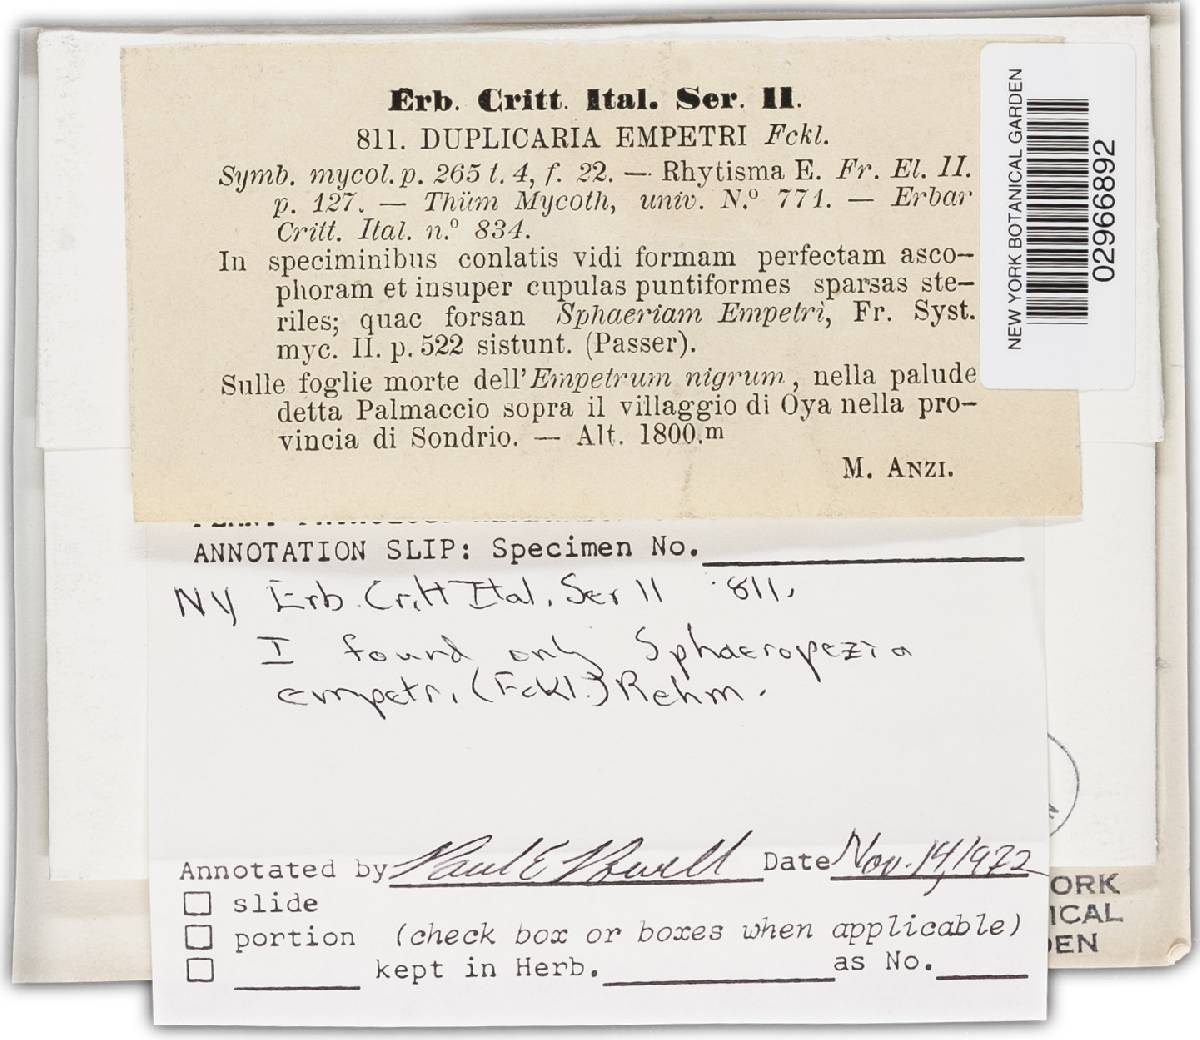 Erb. Critt. Ital. Ser. II.
811. DUPLICARIA EMPETRI Fckl.
Symb. mycol. p. 265 t. 4, f. 22. — Rhytisma E. Fr. El. II.
p. 127. — Thüm Mycoth, univ. N.º 771. — Erbar
Critt. Ital. n.º 834.
In speciminibus conlatis vidi formam perfectam asco-
phoram et insuper cupulas puntiformes sparsas ste-
riles; quac forsan Sphaeriam Empetri, Fr. Syst.
myc. II. p. 522 sistunt. (Passer).
Sulle foglie morte dell' Empetrum nigrum, nella palude
detta Palmaccio sopra il villaggio di Oya nella pro-
vincia di Sondrio. — Alt. 1800.m
M. ANZI.
NEW YORK BOTANICAL GARDEN
02966892
ANNOTATION SLIP: Specimen No.
NY Erb. Critt Ital. Ser II 811.
I found only Sphaeropezia
empetri (Fckl.) Rehm.
Annotated by Paul E Date Nov. 14, 1972
slide
portion (check box or boxes when applicable)
kept in Herb. as No.
ORK
ICAL
DEN